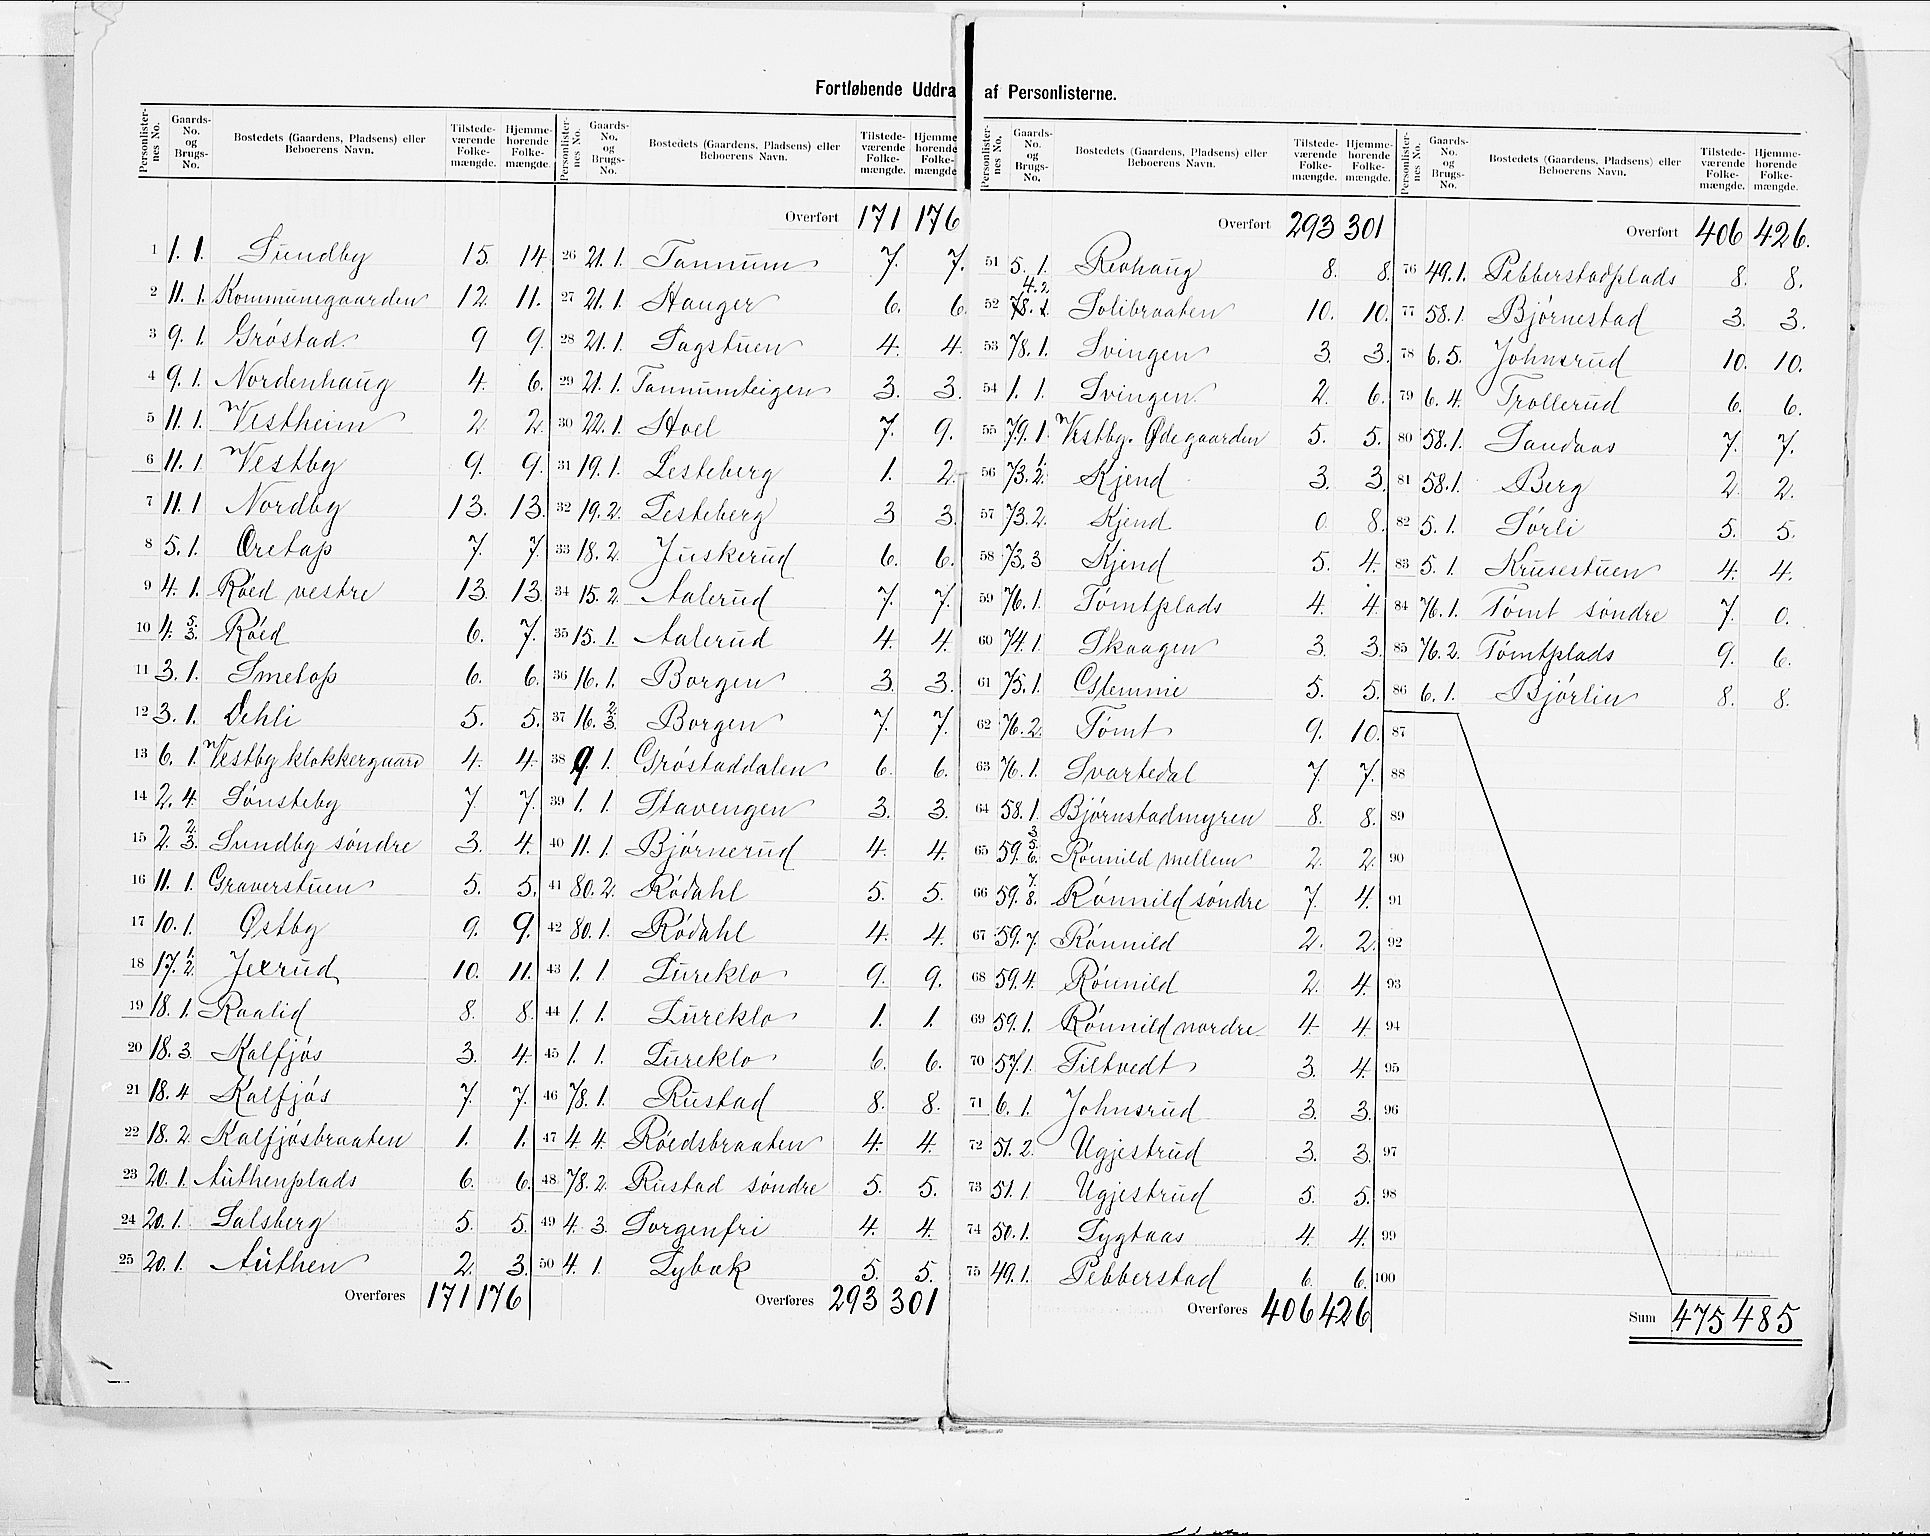 Fortløbende Uddra af Personlisterne.
Personlisternes No. Gaards-No. og Brugs-No. Bostedets (Gaardens, Pladsens) eller Beboerens Navn. Tilstedeværende Folkemængde. Hjemmehørende Folkemængde.
1 1. 1. Sundby 15. 14
2 11. 1. Kommunegaarden 12. 11.
3 9. 1. Gröstad 9 9.
4 9. 1. Nordenhaug 4. 6.
5 11. 1. Vestheim 2 2.
6 11. 1 Vestby 9. 9.
7 11. 1 Nordby 13. 13.
8 5. 1. Oretop 7. 7.
9 4. 1. Röed vestre 13. 13.
10 4. 5. 3. Röed 6. 7.
11 3. 1. Smetop 6. 6.
12 3. 1. Dehli 5. 5.
13 6. 1. Vestby klokkergaard 4. 4.
14 2. 4. Sönsteby 7. 7.
15 2. 2. 3. Sundby söndre 3. 4.
16 11. 1. Graverstuen 5. 5.
17 10. 1. Østby 9. 9.
18 17. 1. 2. Jexrud 10. 11.
19 18. 1. Raalid 8. 8.
20 18. 3. Kalfjös 3. 4.
21 18. 4 Kalfjös 7. 7.
22 18. 2. Kalfjösbraaten 1. 1.
23 20. 1. Authenplads 6. 6.
24 20. 1. Salsberg 5. 5.
25 20. 1. Authen 2. 3.
Overføres 171 176
Personlisternes No. Gaards-No. og Brugs-No. Bostedets (Gaardens, Pladsens) eller Beboerens Navn. Tilstedeværende Folkemængde. Hjemmehørende Folkemængde.
Overført 171 176
26 21. 1. Tannum 7. 7.
27 21. 1. Hauger 6. 6.
28 21. 1. Sagstuen 4. 4.
29 21. 1. Tannumteigen 3. 3.
30 22. 1. Hoel 7. 9.
31 19. 1. Lesteberg 1. 2.
32 19. 2. Lesteberg 3 3.
33 18. 2. Juskerud 6. 6.
34 15. 2. Aalerud 7. 7.
35 15. 1. Aalerud 4. 4.
36 16. 1. Borgen 3. 3.
37 16. 2. 3. Borgen 7. 7.
38 9. 1. Gröstaddalen 6. 6.
39 1. 1. Stavengen 3. 3.
40 11. 1. Björnerud 4. 4.
41 80. 2. Rödahl 5. 5.
42 80. 1. Rödahl 4. 4.
43 1. 1. Lureklo 9. 9.
44 1. 1. Lureklo 1. 1.
45 1. 1. Lureklo 6. 6.
46 78. 1. Rustad 8. 8.
47 4. 4. Röedsbraaten 4. 4.
48 78. 2. Rustad söndre 5. 5.
49 4. 3. Sorgenfri 4. 4.
50 4. 1. Lybæk 5. 5.
Overføres 293 301
Personlisternes No. Gaards-No. og Brugs-No. Bostedets (Gaardens, Pladsens) eller Beboerens Navn. Tilstedeværende Folkemængde. Hjemmehørende Folkemængde.
Overført 293 301
51 5. 1. Revhaug 8. 8.
52 4. 2. 78. 1. Solibraaten 10. 10.
53 78. 1. Svingen 3. 3.
54 1. 1. Svingen 2. 6.
55 79. 1. Vestby. Ødegaarden 5. 5.
56 73. 1. 2. Kjend 3. 3.
57 73. 2. Kjend 0. 8.
58 73. 3 Kjend 5. 4.
59 76. 1. Tömtplads 4. 4.
60 74. 1. Skaagen 3. 3.
61 75. 1. 5. 5.
62 76. 2. Tömt 9. 10.
63 76. 1. Svartedal 7. 7.
64 58. 1. Björnstadmyren 8. 8.
65 59. 3 5. 6. Rönnild mellem 2. 2.
66 59. 7. 8. Rönnild söndre 7. 4.
67 59. 7. Rönnild 2. 2.
68 59. 4. Rönnild 2. 4.
69 59. 1. Rönnild nordre 4. 4.
70 57. 1. Tiltvedt 3. 4.
71 6. 1. Johnsrud 3. 3.
72 51. 2. Ugjestrud 3. 3.
73 51. 1. Ugjestrud 5. 5.
74 50. 1. Lygtaas 4. 4.
75 49. 1. Pebberstad 6. 6.
Overføres 406 426
Personlisternes No. Gaards-No. og Brugs-No. Bostedets (Gaardens, Pladsens) eller Beboerens Navn. Tilstedeværende Folkemængde. Hjemmehørende Folkemængde.
Overført 406 426.
76 49. 1. Pebberstadplads 8. 8.
77 58. 1. Björnestad 3. 3.
78 6. 5. Johnsrud 10. 10.
79 6. 4. Trollerud 6. 6.
80 58. 1. Sandaas 7. 7.
81 58. 1. Berg 2. 2.
82 5. 1. Sörli 5. 5.
83 5. 1. Krusestuen 4. 4.
84 76. 1. Tömt söndre 7. 0.
85 76. 2. Tömtplads 9. 6.
86 6. 1. Björlin 8. 8.
87
88
89
90
91
92
93
94
95
96
97
98
99
100
Sum 475 485